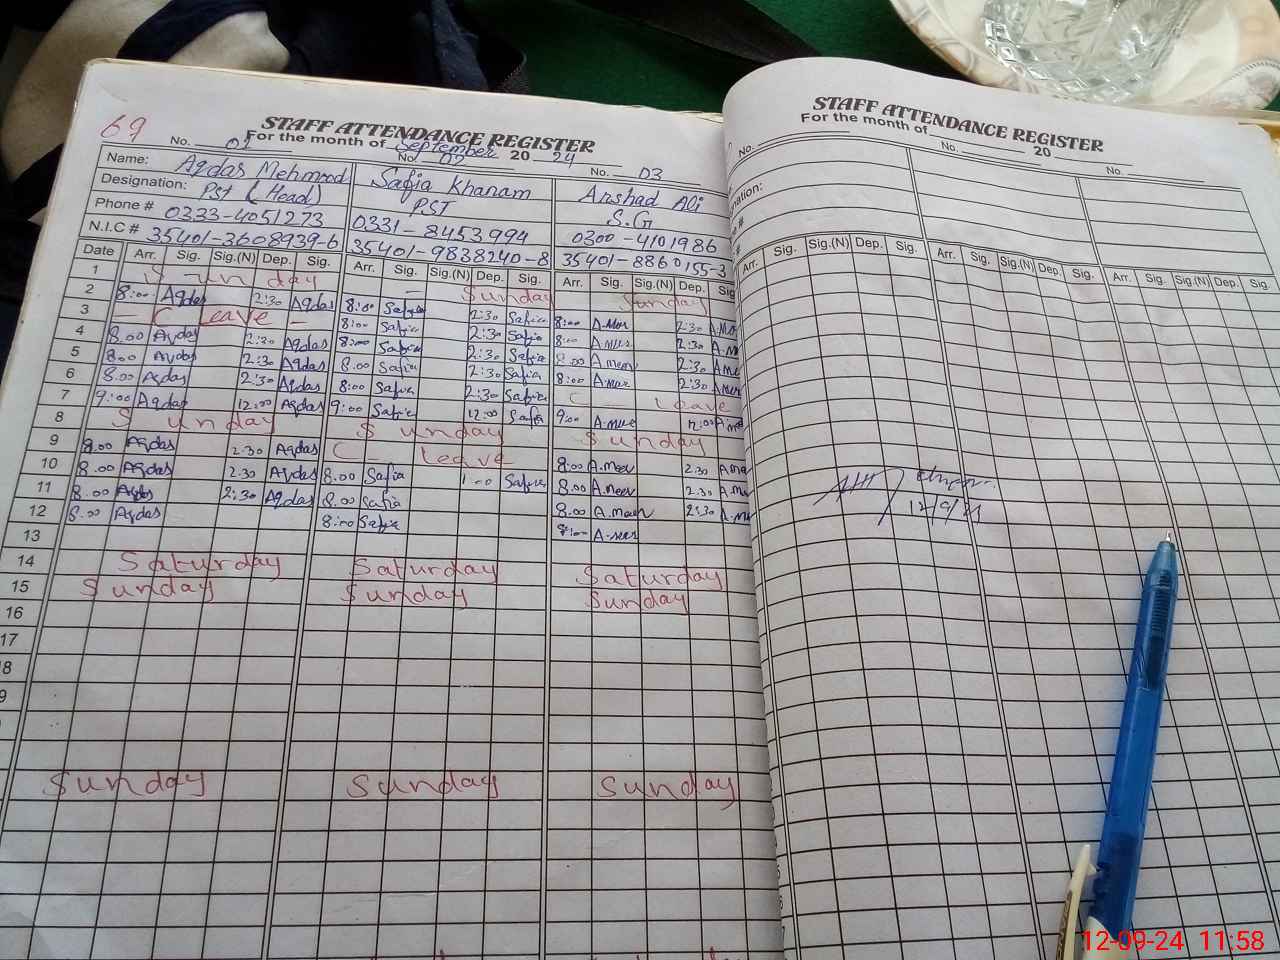 69
STAFF ATTENDANCE REGISTER
For the month of September 20 24
No. 01 No. 02 No. 03
Name: Aqdas Mehmood Safia Khanam Arshad Ali
Designation: Pst (Head) PST S.G
Phone # 0333-4051273 0331-8453994 0300-4101986
N.I.C # 35401-3608939-6 35401-9838240-8 35401-8860155-3
Date Arr. Sig. Sig.(N) Dep. Sig. Arr. Sig. Sig.(N) Dep. Sig. Arr. Sig. Sig.(N) Dep. Sig
1 Sunday Sunday Sunday
2 8:00 Aqdas 2:30 Aqdas 8:00 Safia 2:30 Safia 8:00 2:30
3 C Leave 8:00 Safia 2:30 Safia 8:00 2:30
4 8.00 Aqdas 2:30 Aqdas 8:00 Safia 2:30 Safia 8:00 2:30
5 8.00 Aqdas 2:30 Aqdas 8.00 Safia 2:30 Safia 8:00 2:30
6 8.00 Aqdas 2:30 Aqdas 8:00 Safia 2:30 Safia C Leave
7 9:00 Aqdas 12:00 Aqdas 9:00 Safia 12:00 Safia 9:00 12:00
8 Sunday Sunday Sunday
9 8.00 Aqdas 2.30 Aqdas C Leave 8:00 A.meer 2:30
10 8.00 Aqdas 2.30 Aqdas 8.00 Safia 1:00 Safia 8.00 A.meer 2.30
11 8.00 Aqdas 2:30 Aqdas 8.00 Safia 8.00 A.meer 2:30
12 8.00 Aqdas 8:00 Safia 8:00
13
14 Saturday Saturday Saturday
15 Sunday Sunday Sunday
16
17
8
9
Sunday Sunday Sunday
STAFF ATTENDANCE REGISTER
For the month of 20
No. No. No.
nation:
#
Arr. Sig. Sig.(N) Dep. Sig. Arr. Sig. Sig.(N) Dep. Sig. Arr. Sig. Sig.(N) Dep. Sig.
12/9/24
12-09-24 11:58